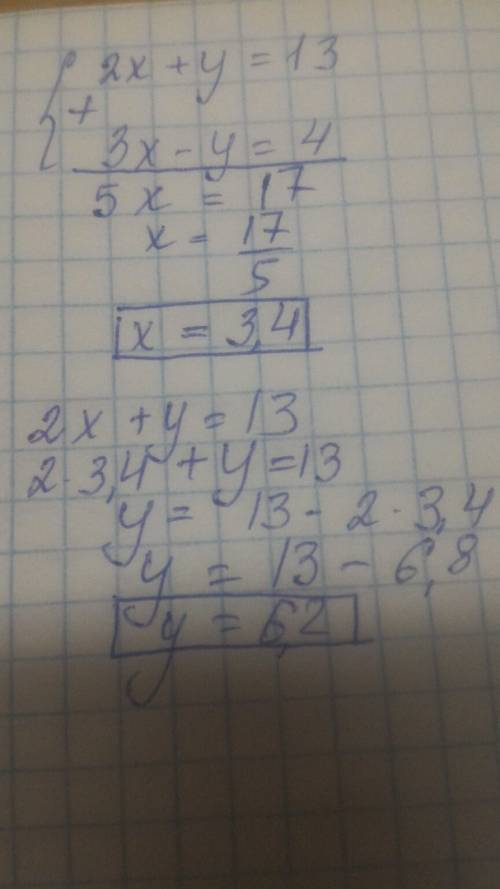 2x + y = 13
+
3x - y = 4
5x = 17
x = 17/5
x = 3,4
2x + y = 13
2 · 3,4 + y = 13
y = 13 - 2 · 3,4
y = 13 - 6,8
y = 6,2